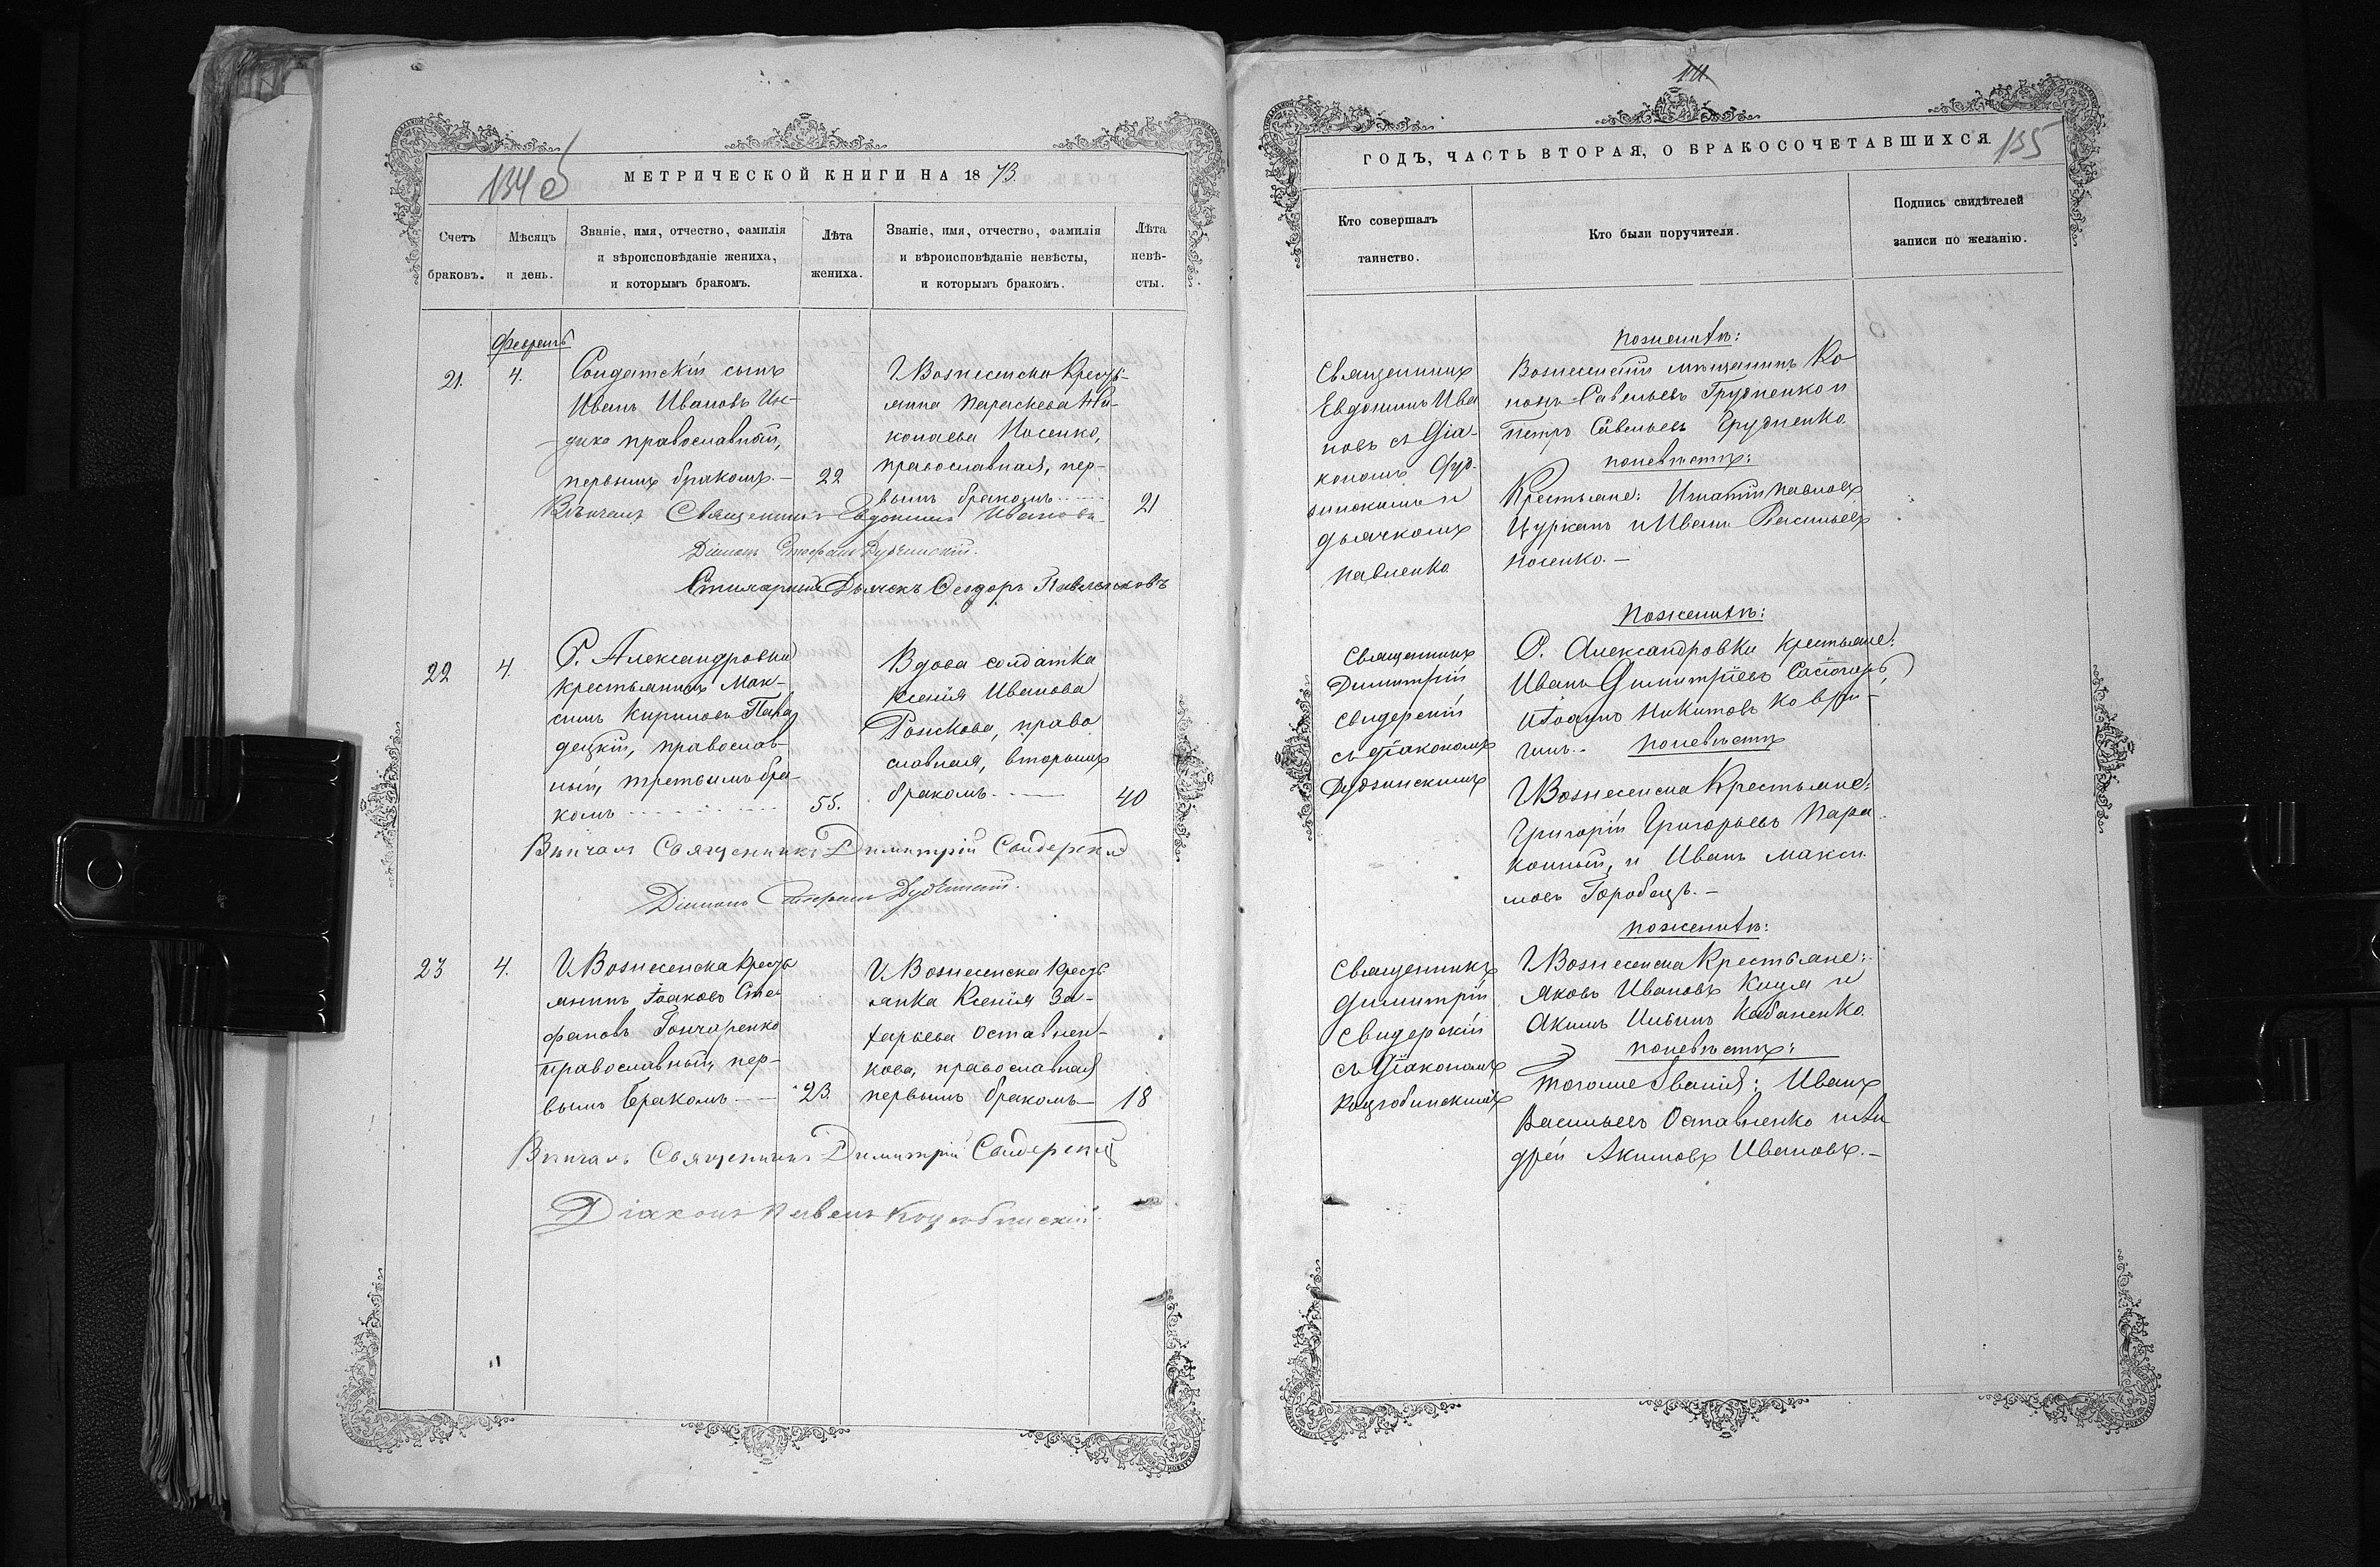 134 об
МЕТРИЧЕСКОЙ КНИГИ НА 1873
Счетъ браковъ.
Мѣсяцъ и день.
Званіе, имя, отчество, фамилія
и вѣроисповѣданіе жениха,
и которымъ бракомъ.
Лѣта жениха.
Званіе, имя, отчество, фамилія
и вѣроисповѣданіе невѣсты,
и которымъ бракомъ.
Лѣта невѣ-
сты.
Февраль
21.
4.
Солдатскій сынъ
Иванъ Ивановъ Ин-
дико православный,
первымъ бракомъ.—
22
Г. Вознесенска Кресть-
янка Параскева Ни-
колаева Носенко,
православная, пер-
вымъ бракомъ
21
Вѣнчалъ Священникъ Евдокимъ Ивановъ
Діаконъ Стефанъ Дудзинскій.
Стихарный Дьячекъ Ѳеодоръ
22
4.
С. Александровки
крестьянинъ Мак-
симъ Кириловъ
православ-
ный, третьимъ бра-
комъ
55.
Вдова солдатка
Ксенія Иванова
Рожкова, право
славная, вторымъ
бракомъ.
40
Вѣнчалъ Священникъ Димитрій Свидерскій
Діаконъ Стефанъ Дудзинскій.
23
4.
Г. Вознесенска Кресть
янинъ Іоаковъ Сте-
фановъ Гончаренко
православный, пер-
вымъ бракомъ —
23.
Г. Вознесенска Кресть
янка Ксенія За-
харьева Оставнен-
кова, православная
первымъ бракомъ—
18
Вѣнчалъ Священникъ Димитрій Свидерскій
Діаконъ Павелъ Коцюбинскій.
135
ГОДЪ, ЧАСТЬ ВТОРАЯ, О БРАКОСОЧЕТАВШИХСЯ
Кто совершалъ
таинство.
Кто были поручители.
Подпись свидѣтелей
записи по желанію.
Священникъ
Евдокимъ Ива
новъ съ Діа-
кономъ Дуд-
зинскимъ и
дьячкомъ
Павленко
по женихѣ:
Вознесенскій мѣщанинъ Ко
нонъ Савельевъ Грудненко и
Петръ Савельевъ Грудненко.
по невѣстѣ:
Крестьяне: Игнатій Павловъ
Цурканъ и Иванъ Васильевъ
Носенко.—
Священникъ
Димитрій
Свидерскій
съ діакономъ
Дудзинскимъ
По женихѣ:
С. Александровки крестьяне:
Иванъ Димитріевъ
и Іоаннъ Никитовъ Коври-
гинъ.. по невѣстѣ
Г. Вознесенска Крестьяне:
Григорій Григорьевъ Пара
конный, и Иванъ Макси
мовъ Горобецъ.—
Священникъ
Димитрій
Свидерскій
съ Діакономъ
Коцюбинскимъ
по женихѣ:
Г. Вознесенска Крестьяне:
Яковъ Ивановъ Куця и
Акимъ Ильинъ Кабаненко.
по невѣстѣ:
того же званія: Иванъ
Васильевъ Оставненко и Ан
дрей Акимовъ Ивановъ.—